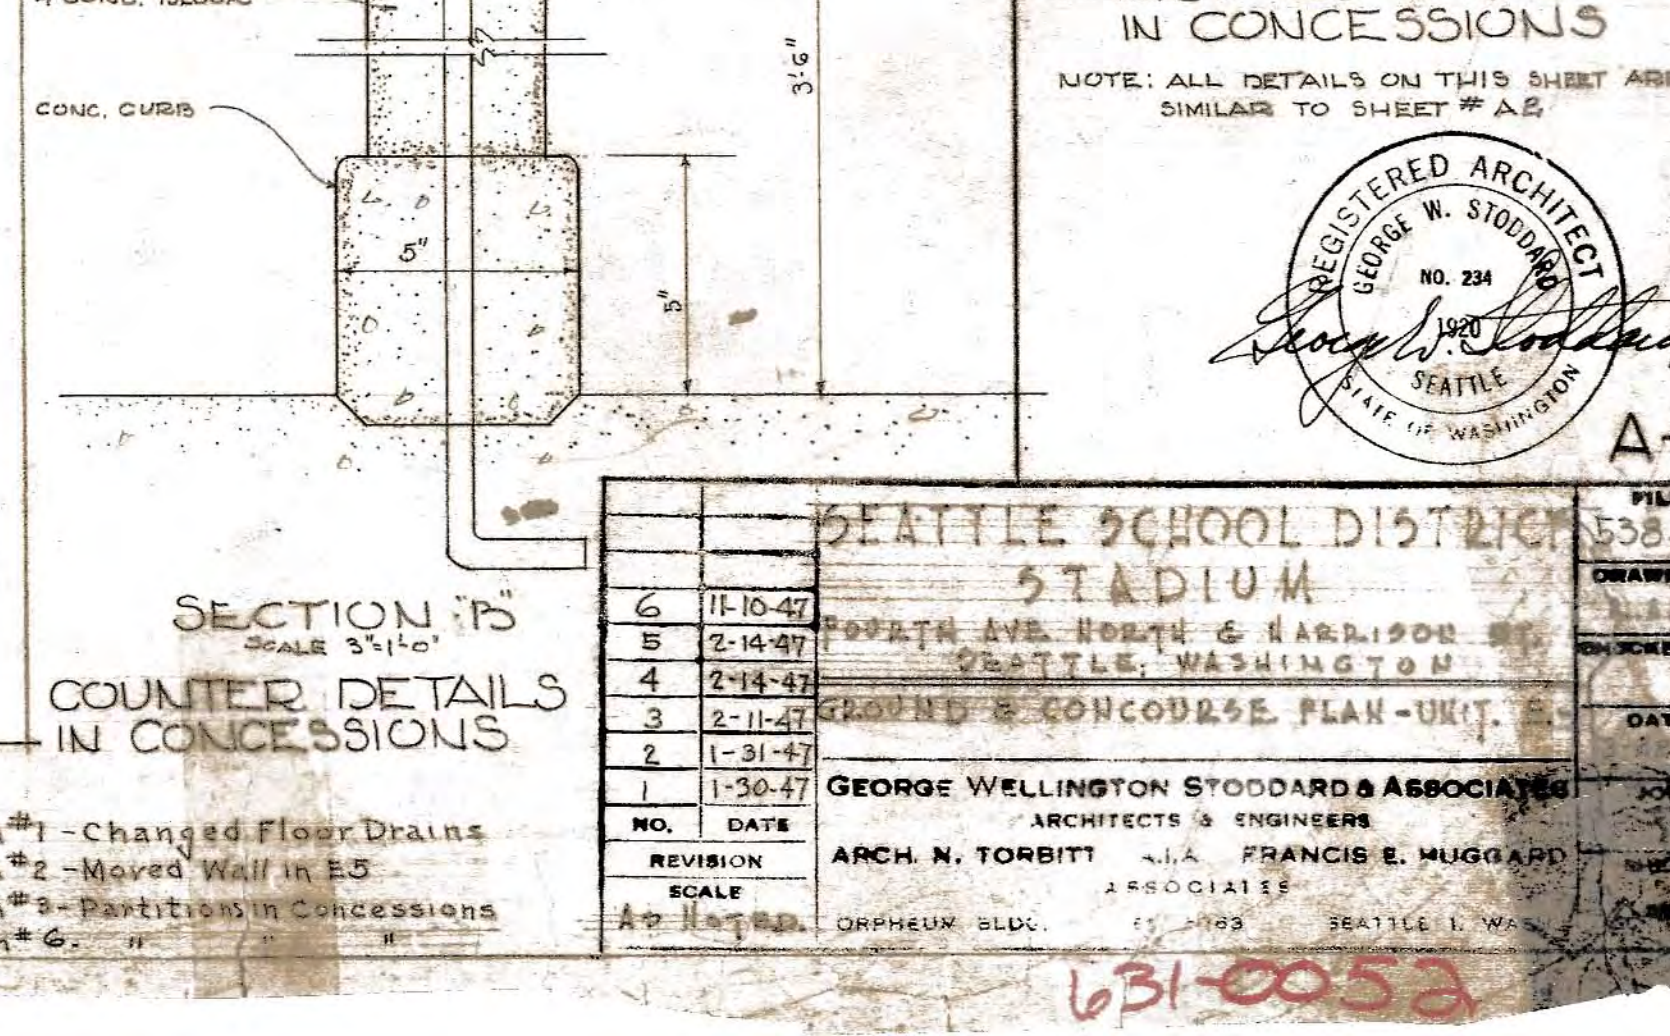 CONC. CURB
5"
5"
3'-6"
IN CONCESSIONS
NOTE: ALL DETAILS ON THIS SHEET ARE
SIMILAR TO SHEET # A
REGISTERED ARCHITECT
GEORGE W. STODDARD
NO. 234
1920
SEATTLE
STATE OF WASHINGTON
George W. Stoddard
A-
SECTION "B"
SCALE 3"=1'-0"
COUNTER DETAILS
IN CONCESSIONS
#1 - Changed Floor Drains
#2 - Moved Wall in E5
#3 - Partitions in Concessions
#6. " " "
6 11-10-47
5 2-14-47
4 2-14-47
3 2-11-47
2 1-31-47
1 1-30-47
NO. DATE
REVISION
SCALE
AS NOTED.
SEATTLE SCHOOL DISTRICT
STADIUM
FOURTH AVE NORTH & HARRISON ST.
SEATTLE, WASHINGTON
GROUND & CONCOURSE PLAN-UNIT. E.
GEORGE WELLINGTON STODDARD & ASSOCIATES
ARCHITECTS & ENGINEERS
ARCH. N. TORBITT A.I.A. FRANCIS E. HUGGARD
ASSOCIATES
ORPHEUM BLDG. SEATTLE 1, WASH
538
631-0052